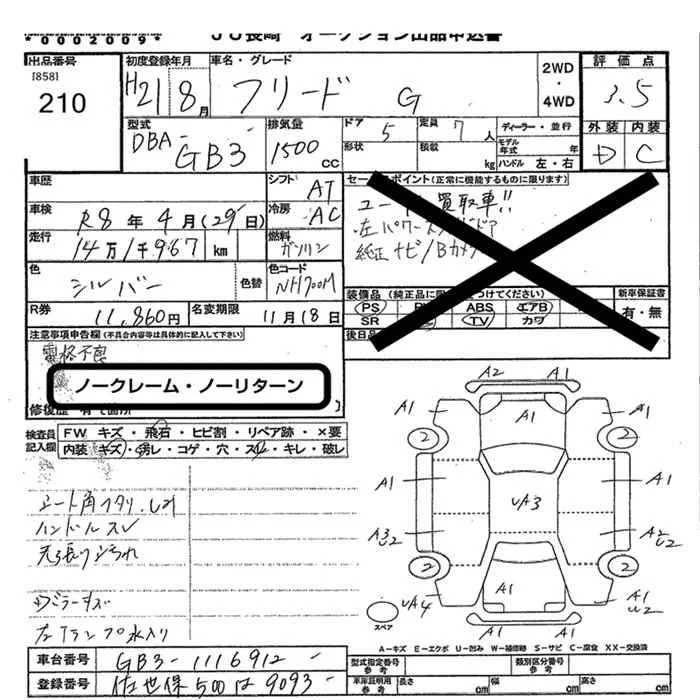 JU長崎 オークション出品申込書
*0002009*
出品番号
[858]
210
初度登録年月
H21 8月
車名・グレード
フリード G
2WD
・
4WD
評価点
3.5
外装 内装
D C
型式
DBA-
GB3
排気量
1500
CC
ドア
5
定員
7人
ディーラー・並行
形状
積載
kg
モデル
年式
年
ハンドル 左・右
車歴
シフト
AT
車検
R8年4月(29日)
冷房
AC
走行
14万1千967 km
燃料
ガソリン
色
シルバー
色替
色コード
NH700M
セールスポイント(正常に機能するものに限ります)
買取車!!
左パワースライドドア
純正ナビ/Bカメラ
装備品
(PS)
ABS
エアB
SR
TV
カワ
新車保証書
有・無
後日品
R券
11,860円
名変期限
11月18日
注意事項申告欄(不具合内容等は具体的に記入して下さい)
ノークレーム・ノーリターン
修復歴
検査員
記入欄
FW キズ・飛石・ヒビ割・リペア跡・×要
内装 キズ・汚レ・コゲ・穴・スレ・キレ・破レ
ハンドルスレ
左
A2 A1
A1 A1 A1
2 2
A1 A1
UA3
A3 U2
A2 U2
2 2
A1
UA4
A1 U2
スペア
A1 A1
A-キズ E-エクボ U-凹み W-補修跡 S-サビ C-腐食 XX-交換済
車台番号
GB3-1116912
登録番号
佐世保500は9093
型式指定番号
参考
類別区分番号
参考
車庫証明用
参考
長さ
cm
幅
cm
高さ
cm